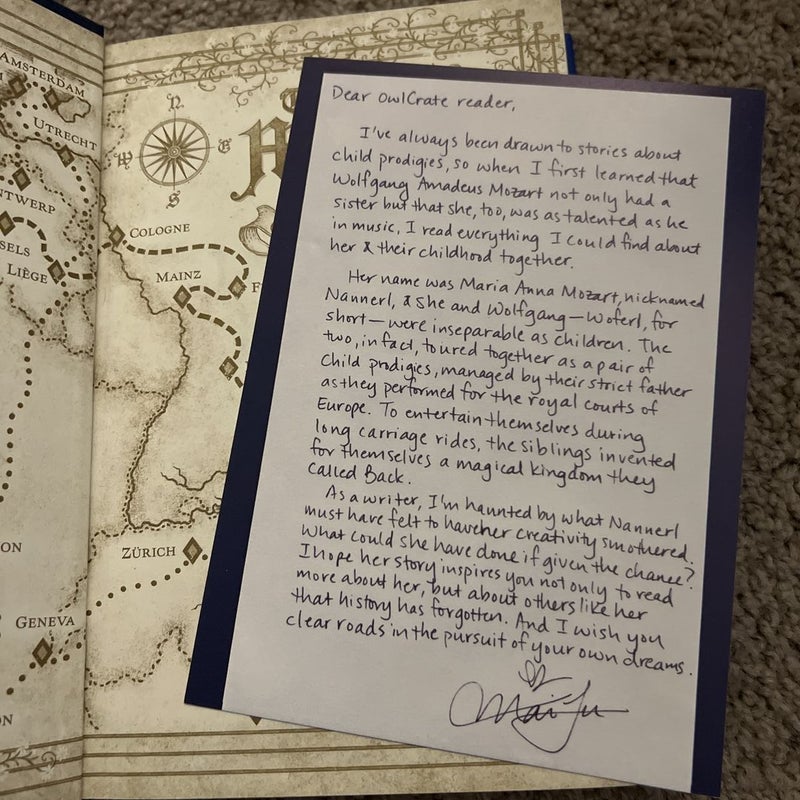 AMSTERDAM
UTRECHT
NTWERP
SELS
LIÈGE
ON
GENEVA
ON
N
W
E
S
COLOGNE
MAINZ
F
ZÜRICH
Dear OwlCrate reader,
I've always been drawn to stories about
child prodigies, so when I first learned that
Wolfgang Amadeus Mozart not only had a
sister but that she, too, was as talented as he
in music, I read everything I could find about
her & their childhood together.
Her name was Maria Anna Mozart, nicknamed
Nannerl, & she and Wolfgang—Woferl, for
short—were inseparable as children. The
two, in fact, toured together as a pair of
child prodigies, managed by their strict father
as they performed for the royal courts of
Europe. To entertain themselves during
long carriage rides, the siblings invented
for themselves a magical kingdom they
called Back.
As a writer, I'm haunted by what Nannerl
must have felt to have her creativity smothered.
What could she have done if given the chance?
I hope her story inspires you not only to read
more about her, but about others like her
that history has forgotten. And I wish you
clear roads in the pursuit of your own dreams.